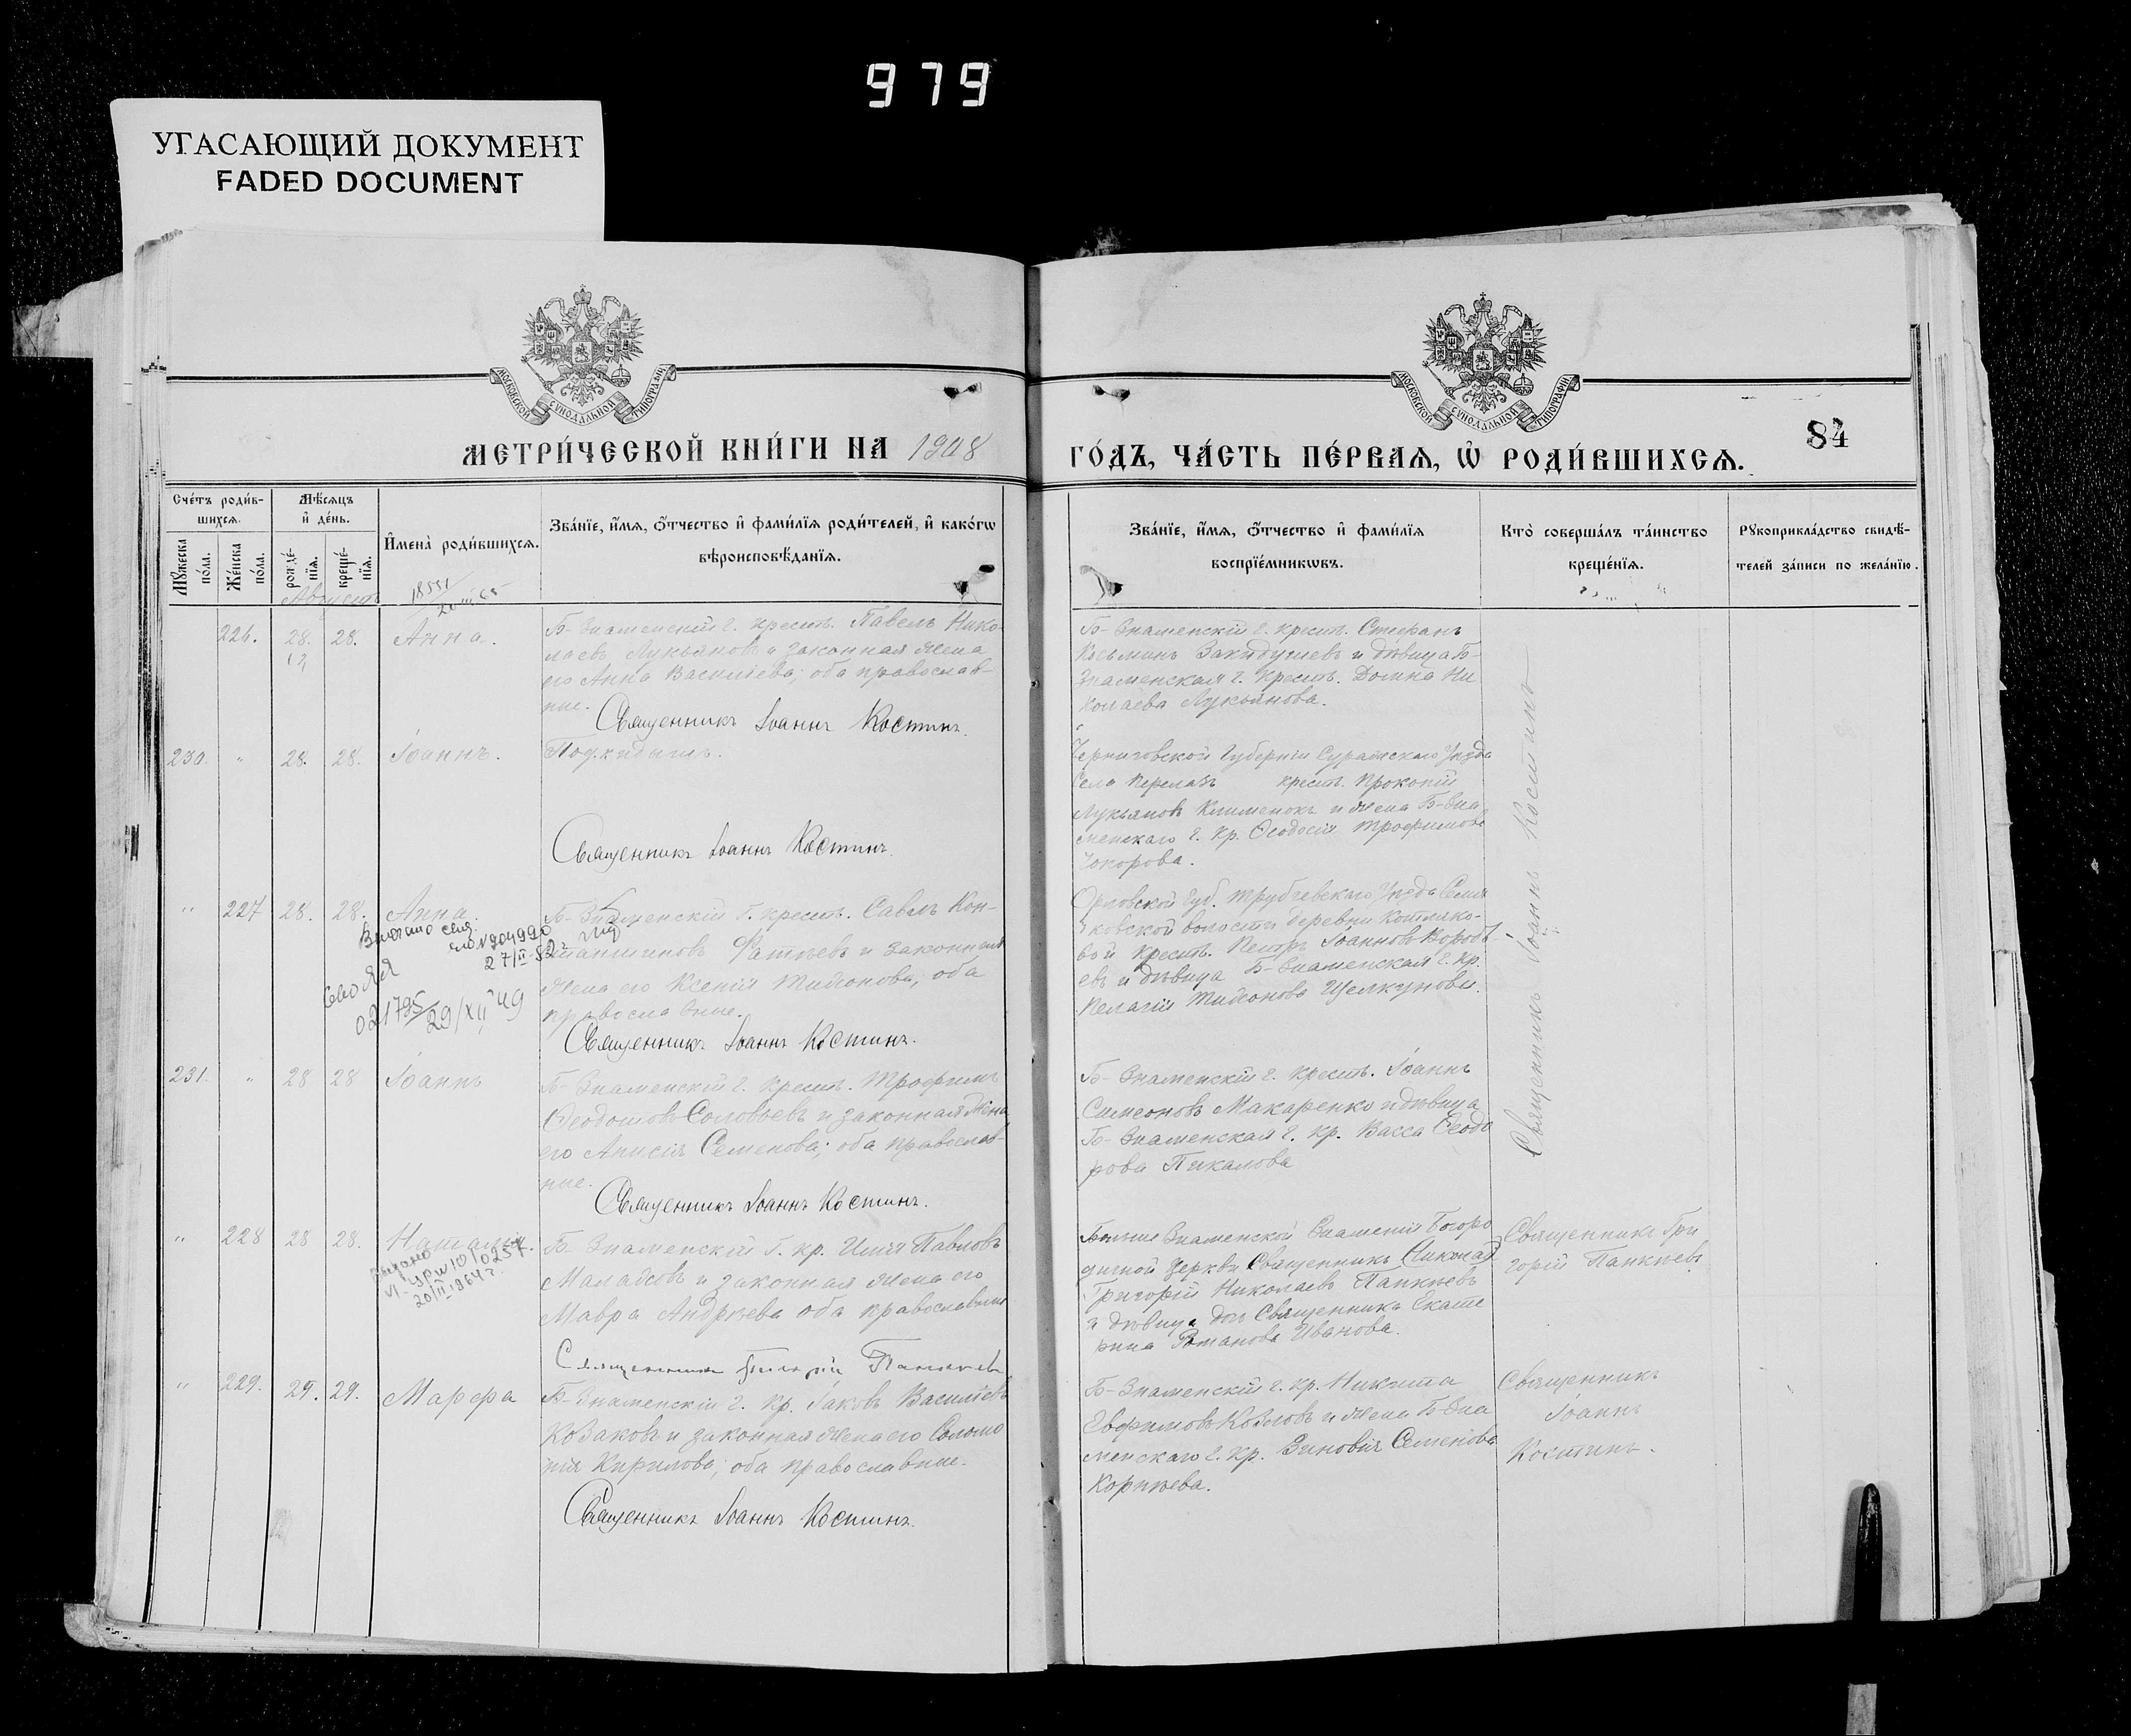 979
УГАСАЮЩИЙ ДОКУМЕНТ
FADED DOCUMENT
МОСКОВСКОЙ СѴНОДАЛЬНОЙ ТИПОГРАФІИ
МОСКОВСКОЙ СѴНОДАЛЬНОЙ ТИПОГРАФІИ
МЕТРИ́ЧЕСКОЙ КНИ́ГИ НА 1908
ГО́ДЪ, ЧА́СТЬ ПЕ́РВАѦ, Ѽ РОДИ́ВШИХСѦ.
84
Сче́тъ роди́в-
шихсѧ.
Мѣ́сѧцъ
и҆ де́нь.
Мꙋ́жеска
по́ла.
Же́нска
по́ла.
рожде́-
нїѧ.
креще́-
нїѧ.
И҆мена̀ роди́вшихсѧ.
Зва́нїе, и҆́мѧ, ѻ҆́тчество и҆ фами́лїѧ роди́телей, и҆ како́гѡ
вѣроисповѣ́данїѧ.
Зва́нїе, и҆́мѧ, ѻ҆́тчество и҆ фами́лїѧ
воспрїе́мникѡвъ.
Кто̀ соверша́лъ та́инство
креще́нїѧ.
Рꙋкоприкла́дство свидѣ́-
телей за́писи по жела́нїю.
Августъ
226. 28. 28. Анна.
Б-Знаменскій г. крест. Павелъ Нико-
лаевъ Лукьяновъ и законная жена
его Анна Васильева; оба православ-
ные.
Священникъ Іоаннъ Костинъ.
Б-Знаменскій г. крест. Стефанъ
Косьминъ и дѣвица Б-
Знаменская г. крест. Домна Ни
колаева Лукьянова.
230. " 28. 28. Іоаннъ.
Подкидышъ.
Священникъ Іоаннъ Костинъ.
Черниговской Губерніи Суражскаго Уѣзда
Села Перелазъ крест. Прокопій
Лукьяновъ Клименокъ и жена Б-Зна
менскаго г. кр. Ѳеодосія Трофимова
" 227 28. 28. Анна.
Б-Знаменскій г. крест. Савва Кон-
стантиновъ Фатѣевъ и законная
жена его Ксенія Тихонова, оба
православные.
Священникъ Іоаннъ Костинъ.
№ 904990
27/II-52 г.
021795
29/XII 49
Орловской Губ. Трубчевскаго Уѣзда Семя
чковской волости деревни Котляко-
вой крест. Петръ Іоанновъ Вороб
евъ и дѣвица Б-Знаменская г. кр.
Пелагія Тихонова Щелкунова.
231. " 28 28 Іоаннъ
Б-Знаменскій г. крест. Трофимъ
Ѳеодотовъ Соловьевъ и законная жена
его Анисія Семенова; оба православ-
ные.
Священникъ Іоаннъ Костинъ.
Б-Знаменскій г. крест. Іоаннъ
Симеоновъ Макаренко и дѣвица
Б-Знаменская г. кр. Васса Ѳеодо
рова Пикалова
Священникъ Іоаннъ Костинъ
" 228 28 28. Наталья.
20/II 1964 г.
Б-Знаменскій г. кр. Илія Павловъ
и законная жена его
Мавра Андреева оба православные
Священникъ Григорій Панкѣевъ
Больше Знаменской Знаменія Богоро
дичной Церкви Священникъ Николай
Григорій Николаевъ Панкѣевъ
и дѣвица дочь Священника Екате
рина Романова Иванова.
Священникъ Гри
горій Панкѣевъ
" 229. 29. 29. Марфа
Б-Знаменскій г. кр. Іаковъ Васильевъ
Козаковъ и законная жена его Соломо
нія Кирилова; оба православные.
Священникъ Іоаннъ Костинъ.
Б-Знаменскій г. кр. Никита
Евфимовъ Козловъ и жена Б-Зна
менскаго г. кр. Зиновія Семенова
Корнѣева.
Священникъ
Іоаннъ
Костинъ.